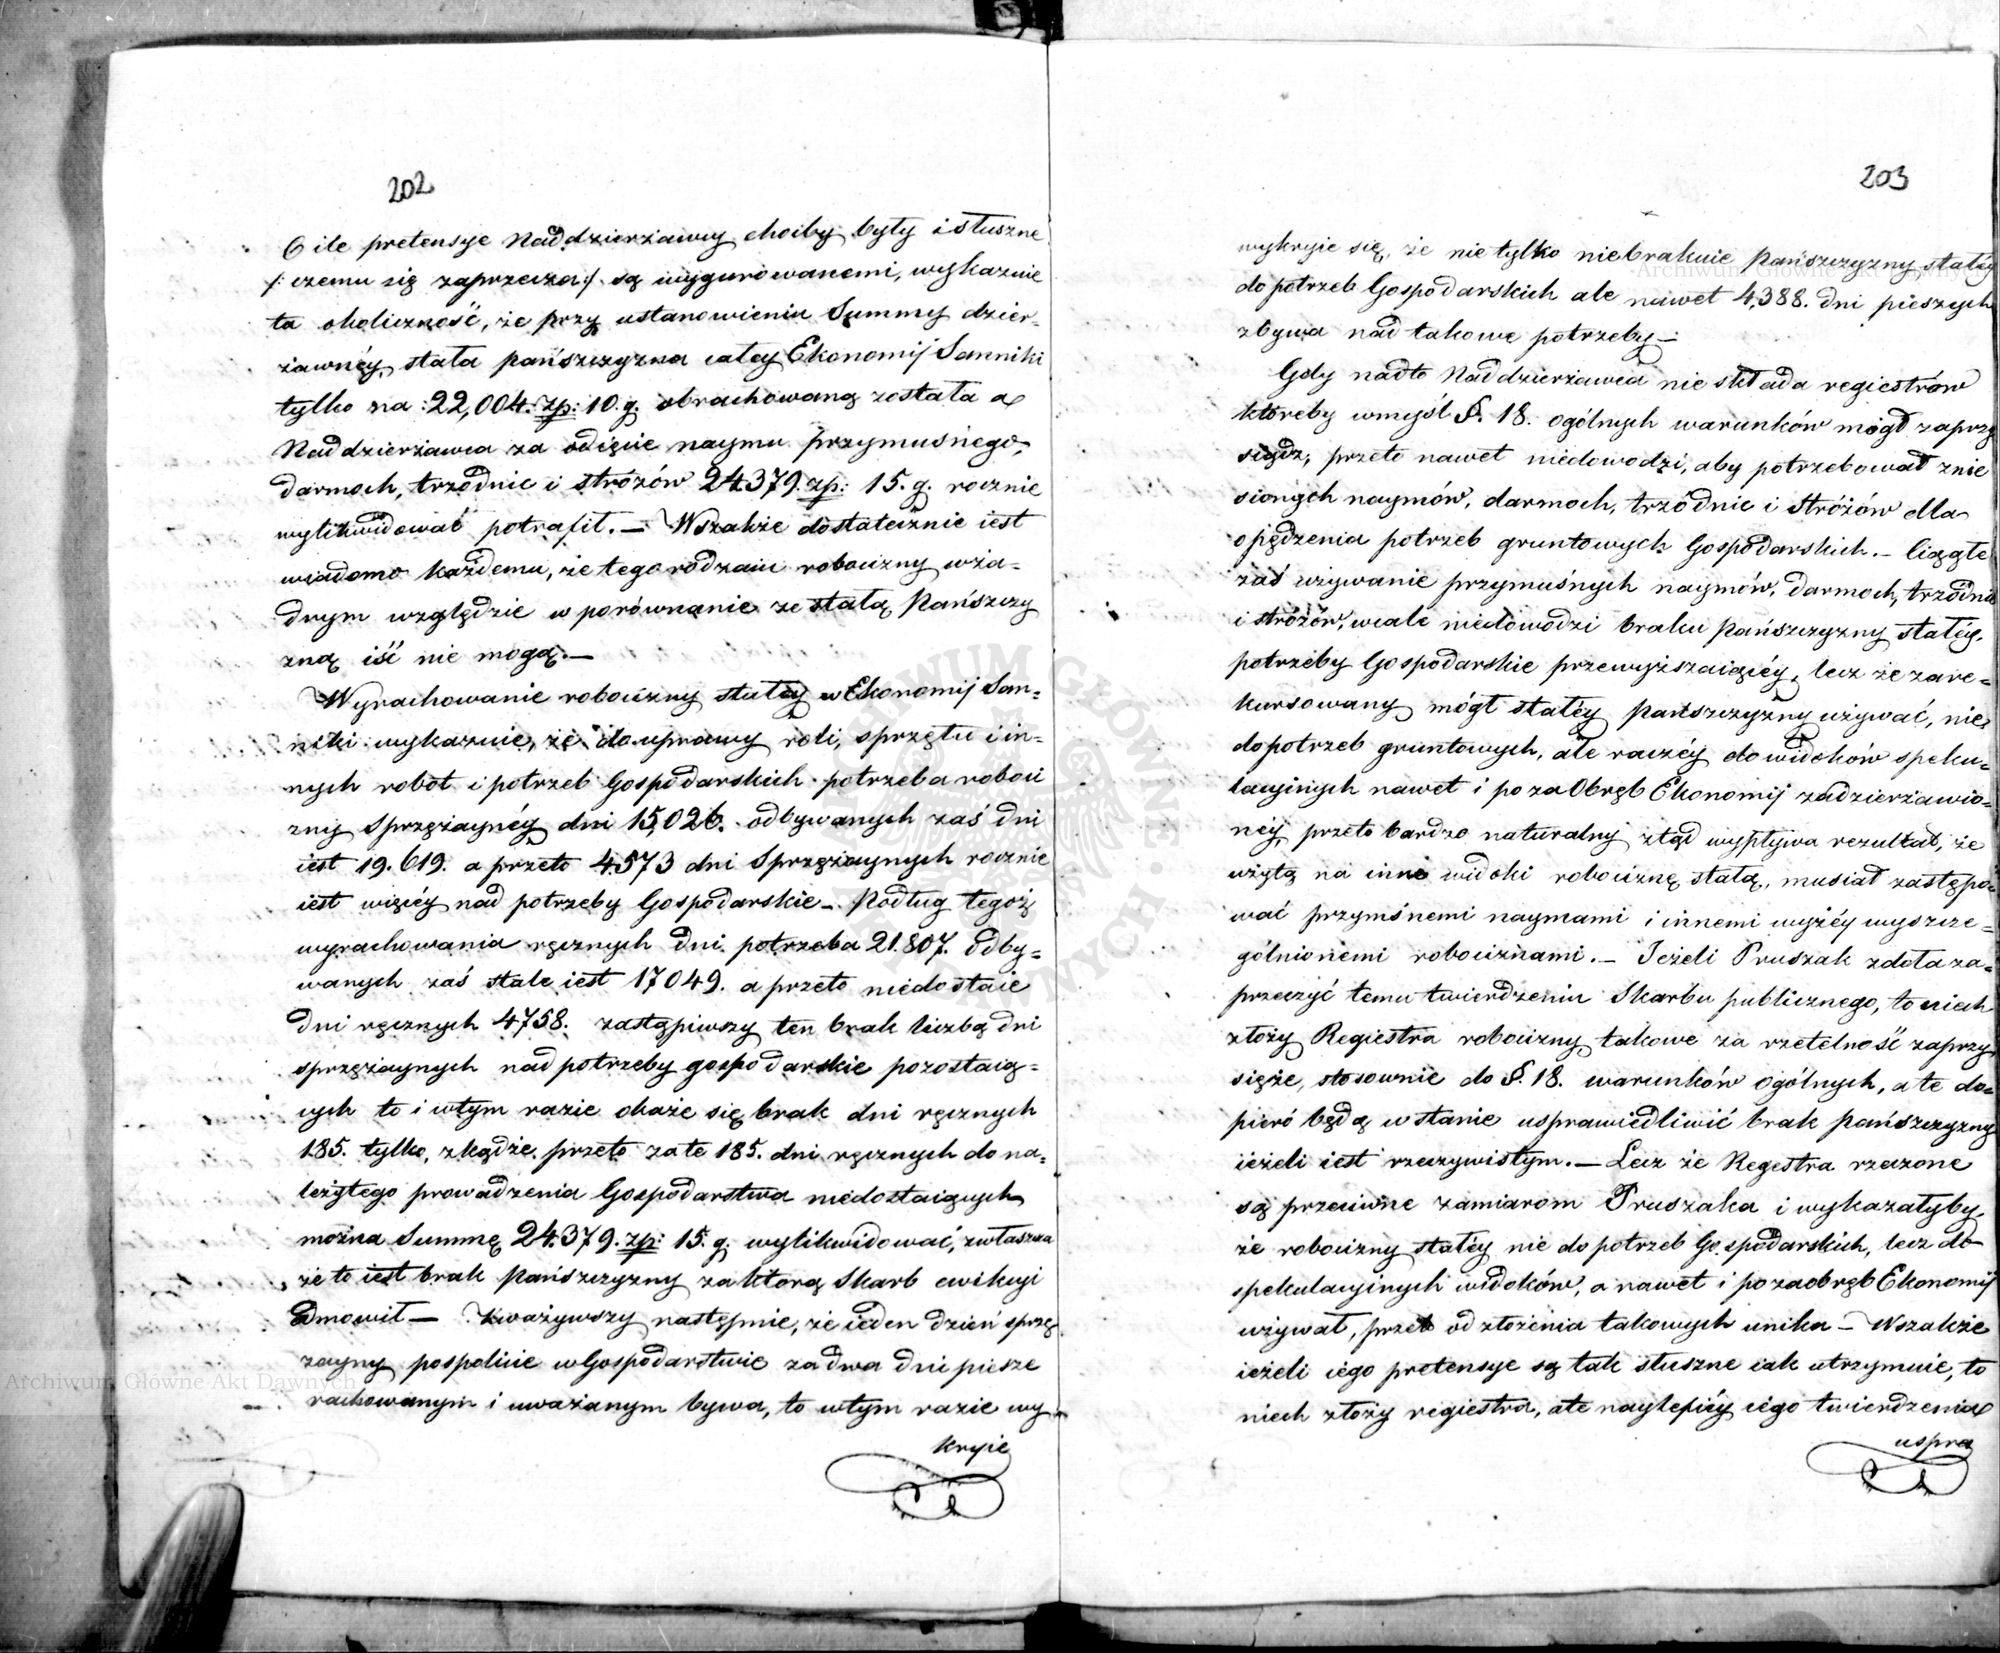 202
O ile pretensye Naddzierżawcy choiby były i słuszne
/: czemu się zaprzecza :/ są wygurowanemi, wykazuie
ta okoliczność, że przy ustanowieniu Summy dzier-
żawnéy, stała pańszczyzna całey Ekonomij Sanniki
tylko na 22,004. zp: 10. g. obrachowaną została a
Naddzierżawca za odięcie naymu przymusnego,
darmoch, trzodnic i stróżów 24379. zp: 15. g. rocznie
wylikwidować potrafił. — Wszakże dostatecznie iest
wiadomo każdemu, że tego rodzaiu robocizny w ża-
dnym względzie w porównanie ze stałą Pańszczy
zną iść nie mogą. —
Wyrachowanie robocizny stałéy w Ekonomij San=
niki wykazuie, że do uprawy roli, sprzętu i in=
nych robot i potrzeb Gospodarskich potrzeba roboci
zny Sprzężaynéy dni 15,026. odbywanych zaś dni
iest 19.619. a przeto 4573 dni Sprzężaynych rocznie
iest więcéy nad potrzeby Gospodarskie — Podług tegoż
wyrachowania ręcznych dni potrzeba 21.807. odby=
wanych zaś stale iest 17049. a przeto niedostaie
dni ręcznych 4758. zastąpiwszy ten brak liczbą dni
sprzężaynych nad potrzeby gospodarskie pozostaią=
cych to i w tym razie okaże się brak dni ręcznych
185. tylko, zkądże przeto za te 185. dni ręcznych do na=
leżytego prowadzenia Gospodarstwa niedostaiących
można Summę 24.379. zp: 15. g. wylikwidować, zwłaszcza
że to iest brak Pańszczyzny za którą Skarb ewikcyi
odmowił — Zważywszy następnie, że ieden dzień sprzę
zayny pospolicie w Gospodarstwie za dwa dni piesze
rachowanym i uważanym bywa, to w tym razie wy=
kryie
203
wykryie się, że nie tylko niebrakuie Pańszczyzny stałéy
do potrzeb Gospodarskich ale nawet 4,388. dni pieszych
zbywa nad takowe potrzeby —
Gdy nadto Naddzierżawca nie składa regiestrów
któreby w myśl §. 18. ogólnych warunków mógł zaprzy
siądz, przeto nawet niedowodzi, aby potrzebował znie
sionych naymów, darmoch, trzódnic i stróżów dla
opędzenia potrzeb gruntowych Gospodarskich. — Ciągłe
zaś używanie przymuśnych naymów, darmoch, trzódnic
i stróżów, wcale niedowodzi braku Pańszczyzny stałéy,
potrzeby Gospodarskie przewyższaiącéy, lecz że zare=
kursowany mógł stałéy Pańszczyzny używać, nie
do potrzeb gruntowych, ale raczéy do widoków speku=
lacyinych nawet i po za Obręb Ekonomij zadzierżawio=
néy, przeto bardzo naturalny ztąd wypływa rezultat, że
użytą na inne widoki robociznę stałą, musiał zastępo=
wać przymśnemi naymami i innemi wyżéy wyszcze=
gólnionemi robociznami. — Jeżeli Pruszak zdoła za=
przeczyć temu twierdzeniu Skarbu publicznego, to niech
złoży Regiestra robocizny, takowe za rzetelność zaprzy
sięże, stosownie do §. 18. warunków ogólnych, a te do=
pieró będą w stanie usprawiedliwić brak Pańszczyzny
ieżeli iest rzeczywistym. — Lecz że Regestra rzeczone
są przeciwne zamiarom Pruszaka i wykazałyby,
że robocizny stałéy nie do potrzeb Gospodarskich, lecz do
spekulacyinych widoków, a nawet i po za obręb Ekonomij
używał, przeto od złożenia takowych unika — Wszakże
ieżeli iego pretensye są tak słuszne iak utrzymuie, to
niech złoży regiestra, ate naylepiéy iego twierdzenia
uspra
Archiwum Główne Akt Dawnych
Archiwum Główne Akt Dawnych